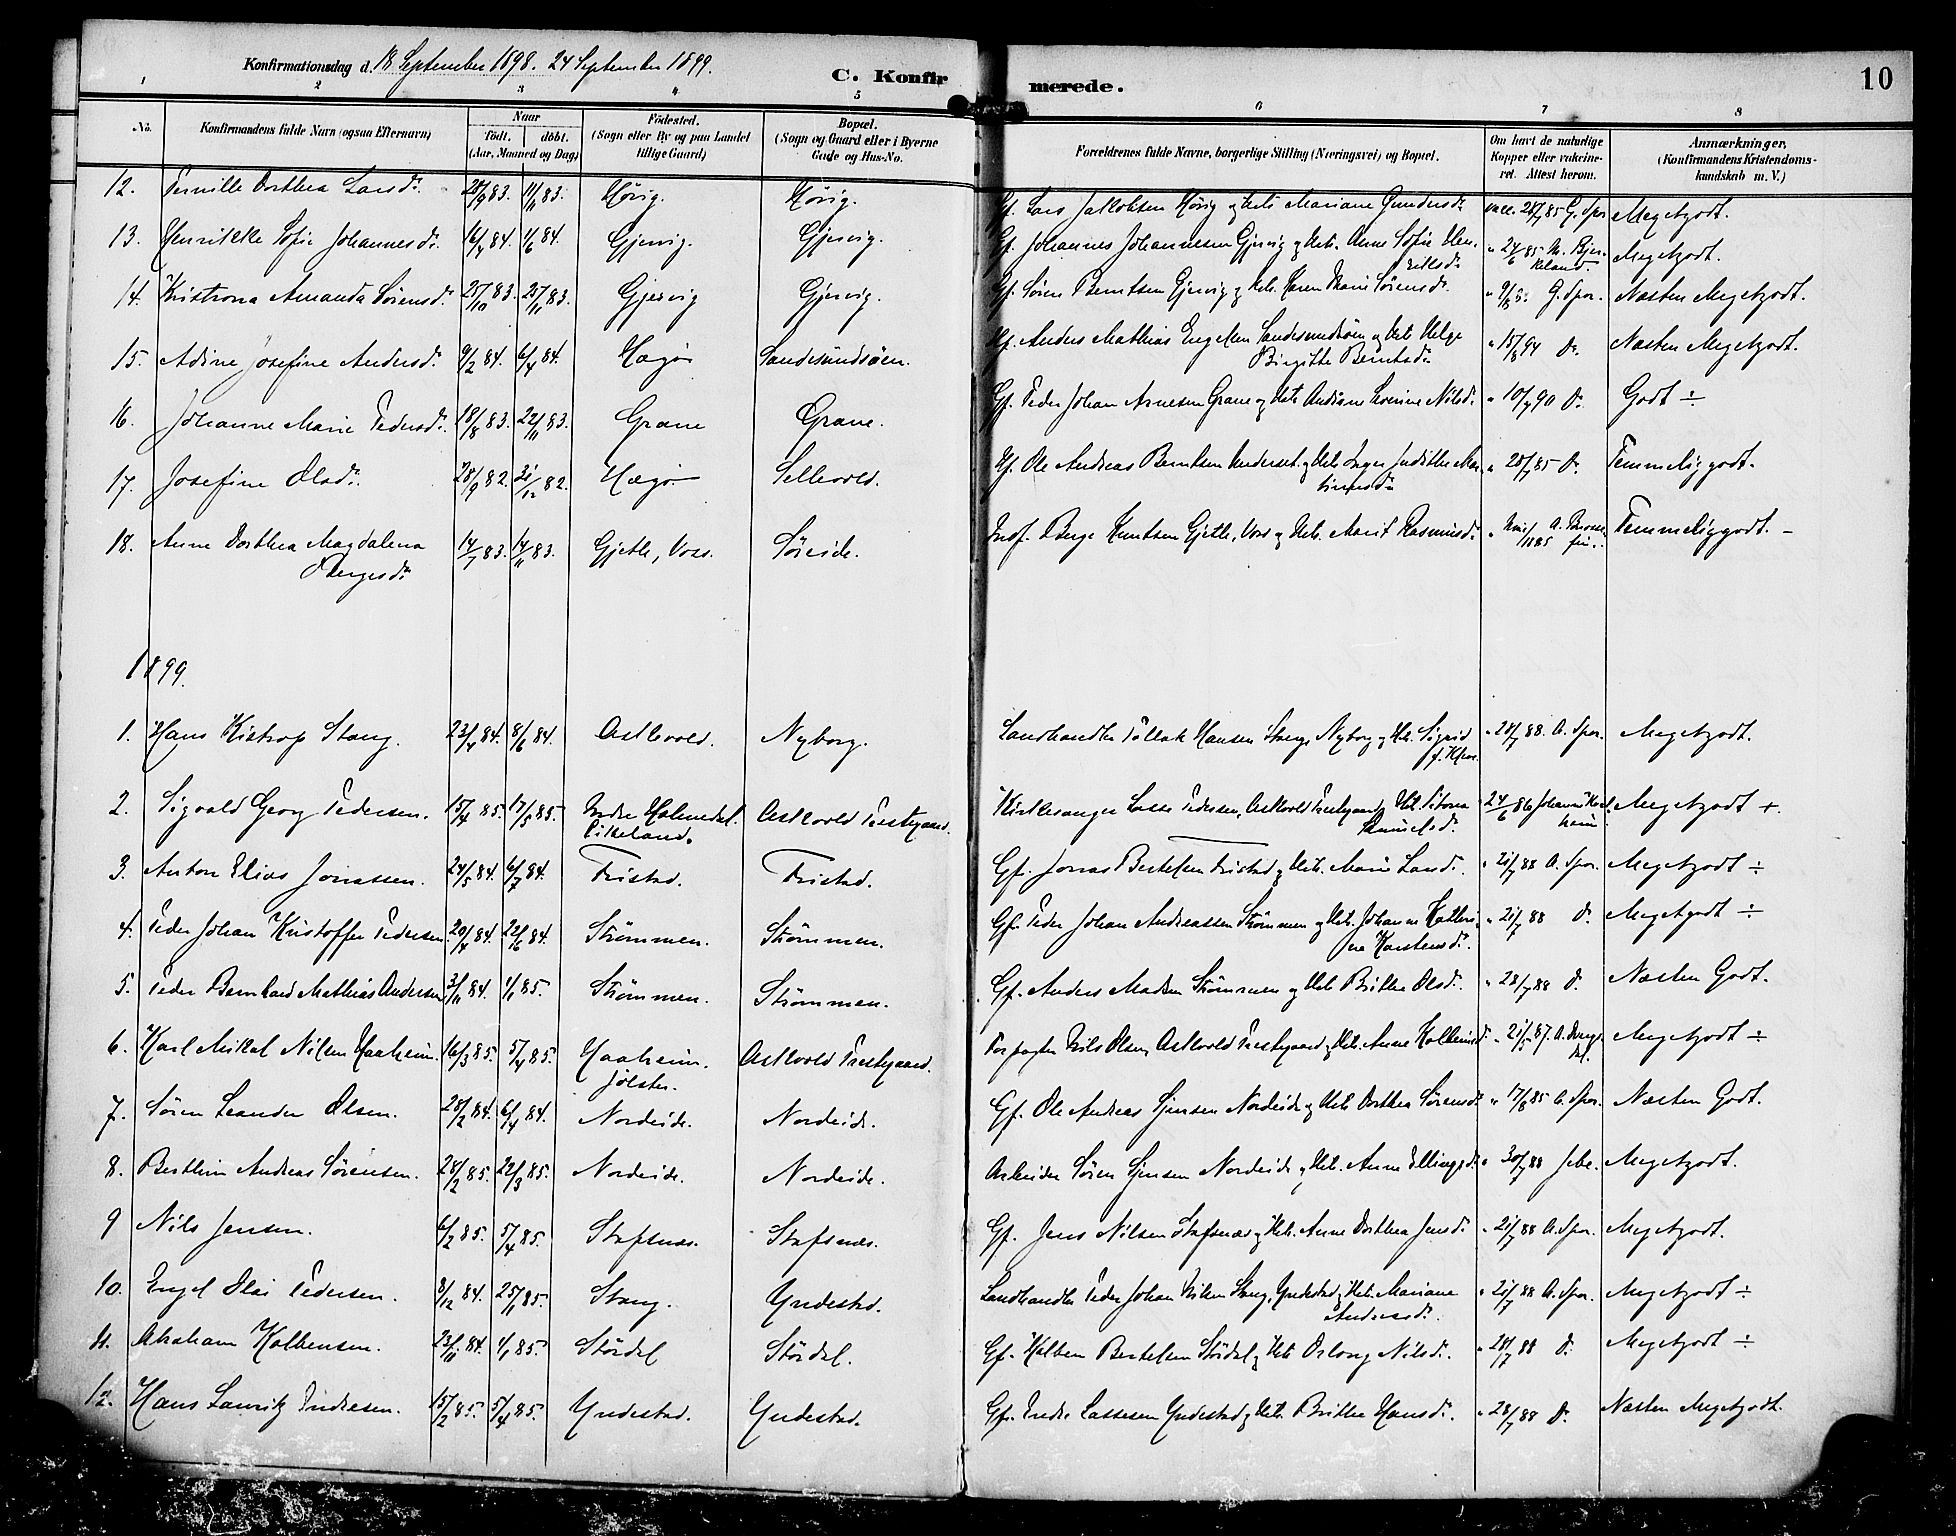 Konfirmationsdag d. 18 September 1898. 24 September 1899.
C. Konfirmerede.
10
1 2 3 4 5 6 7 8
No.
Konfirmandens fulde Navn (ogsaa Efternavn)
Naar
født. døbt.
(Aar, Maaned og Dag)
Fødested.
(Sogn eller By og paa Landet
tillige Gaard)
Bopæl.
(Sogn og Gaard eller i Byerne
Gade og Hus-No.
Forældrenes fulde Navne, borgerlige Stilling (Næringsvei) og Bopæl.
Om havt de naturlige
Kopper eller vakcine-
ret. Attest herom.
Anmærkninger.
(Konfirmandens Kristendoms-
kundskab m. V.)
12. Dorthea Larsdr. 11/11 83. Gf. Lars Jakobsen Mariane Gundersdr. Megetgodt.
13. Henrikke Sofie Johannesdr. 84. 1/6 84. Gjervig. Gjervig. Gf. Johannes Johannesen Gjervig og Hst. Anne Sofie Hen-
" 24/6 85 Megetgodt.
14. Amanda Sørensd. 25/10 83. 25/11 83. Gjervig Gjervig. Gf. Søren Berntsen Gjervig og Hst. Karen Marie Sørensdr. G. Spor. Næsten Megetgodt.
15. Adine Josefine Andersdr. 9/2 84. 6/4 84. Anders Mathias og Hst. Helge
Birgitte Berntsdr. " 15/8 94 Do. Næsten Megetgodt.
16. Johanne Marie Pedersdr. 18/8 83. 22/11 83. Grane Grane. Gf. Peder Johan Arnesen Grane og Hst. Nilsdr. " 10/7 90 Do. Godt ÷
17. Josefine Olsdr. 28/9 82. 31/12 82. Sellevold. Ole Andreas Berntsen og Hst. Inger Judithe
Do. Temmeliggodt.
18. Anne Dorthea Magdalena
Børgesdr. 14/7 83. 14/11 83. Gjetle, Voss. Søreide. Børge Knutsen Gjetle, Voss og Hst. Marit Rasmusdr. Temmeliggodt. –
1899.
1. Hans Kistrop Stang. 23/4 84. 8/6 84. Askvold. Nyborg. Landhandler Tollak Hansen Stang Nyborg og Hst. Sigrid
" 28/7 88. A. Spor. Megetgodt.
2. Sigvald Georg Pedersen. 15/4 85. 17/5 85. Indre Holmedal.
Askvold Prestegaard. Kirkesanger Lasse Pedersen, Askvold Prestegaard
" 24/6 86 Megetgodt +.
3. Anton Elias Jonassen. 24/5 84. 6/7 84. Fristad. Fristad. Gf. Jonas Bertelsen Fristad og Hst. Marie Larsd. " 21/7 88 A. Spor. Megetgodt ÷
4. Peder Johan Kristoffer Pedersen 20/4 84. 22/6 84. Strømmen. Strømmen. Gf. Peder Johan Andreassen Strømmen og Hst. Johanne Kathri-
ne Karstensdr. " 21/7 88 Do. Megetgodt ÷
5. Peder Bernhard Mathias Andersen 3/11 84. 1/1 85. Strømmen. Strømmen. Gf. Anders Madsen Strømmen og Hst. Brithe Olsdr. " 28/7 88 Do. Næsten Godt.
6. Karl Mikal Nilsen Haaheim. 16/3 85. 5/4 85. Haaheim.
Jølster. Askvold Prestegaard. Forpagter Nils Olsen, Askvold Prestegaard og Hst. Anne Megetgodt ÷
7. Søren Leander Olsen. 28/2 84. 6/4 84. Nordeide. Nordeide. Gf. Ole Andreas Sjursen Nordeide og Hst. Dorthea Sørensdr. " 17/8 85 A. Spor. Næsten Godt.
8. Berthin Andreas Sørensen. 28/2 85. 22/3 85. Nordeide. Nordeide. Arbeider Søren Sjursen Nordeide og Hst. Anne Ellingsdr. " 30/7 88 Megetgodt.
9 Nils Jensen. 6/2 85. 5/4 85. Stafsnæs. Stafsnæs. Gf. Jens Nilsen Stafsnæs og Hst. Anne Dorthea Jensdr. " 21/7 88 A. Spor. Megetgodt.
10. Engel Olai Pedersen. 8/12 84. 25/1 85. Stang. Yndestad. Landhandler Peder Johan Nilsen Stang, Yndestad og Hst. Mariane
Andersdr. " 21/7 88 A. Spor. Megetgodt ÷
11. Abraham Kolbensen. 23/11 84. 1/1 85. Stördal Stördal. Gf. Kolben Bertelsen Stördal og Hst. Oslong Nilsdr. " 28/7 88 Do. Megetgodt ÷
12. Hans Lauritz Endresen. 15/2 85. 5/4 85. Yndestad. Yndestad. Gf. Endre Lassesen Yndestad og Hst. Brithe Hansdr. " 28/7 88 Do. Næsten Megetgodt.